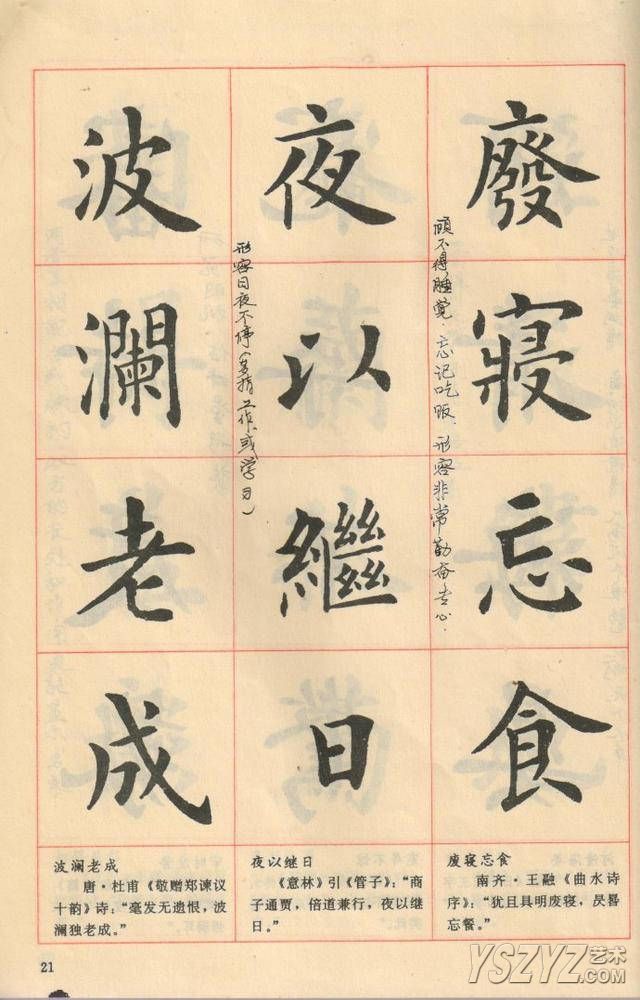 廢寢忘食
顾不得睡觉、忘记吃饭、形容非常勤奋专心.
夜以繼日
形容日夜不停(多指工作或学习)
波瀾老成
废寝忘食
南齐·王融《曲水诗
序》:“犹且具明废寝,昃晷
忘餐。”
夜以继日
《意林》引《管子》:“商
子通贾,倍道兼行,夜以继
日。”
波澜老成
唐·杜甫《敬赠郑谏议
十韵》诗:“毫发无遗恨,波
澜独老成。”
21
YSZYZ艺术
.com